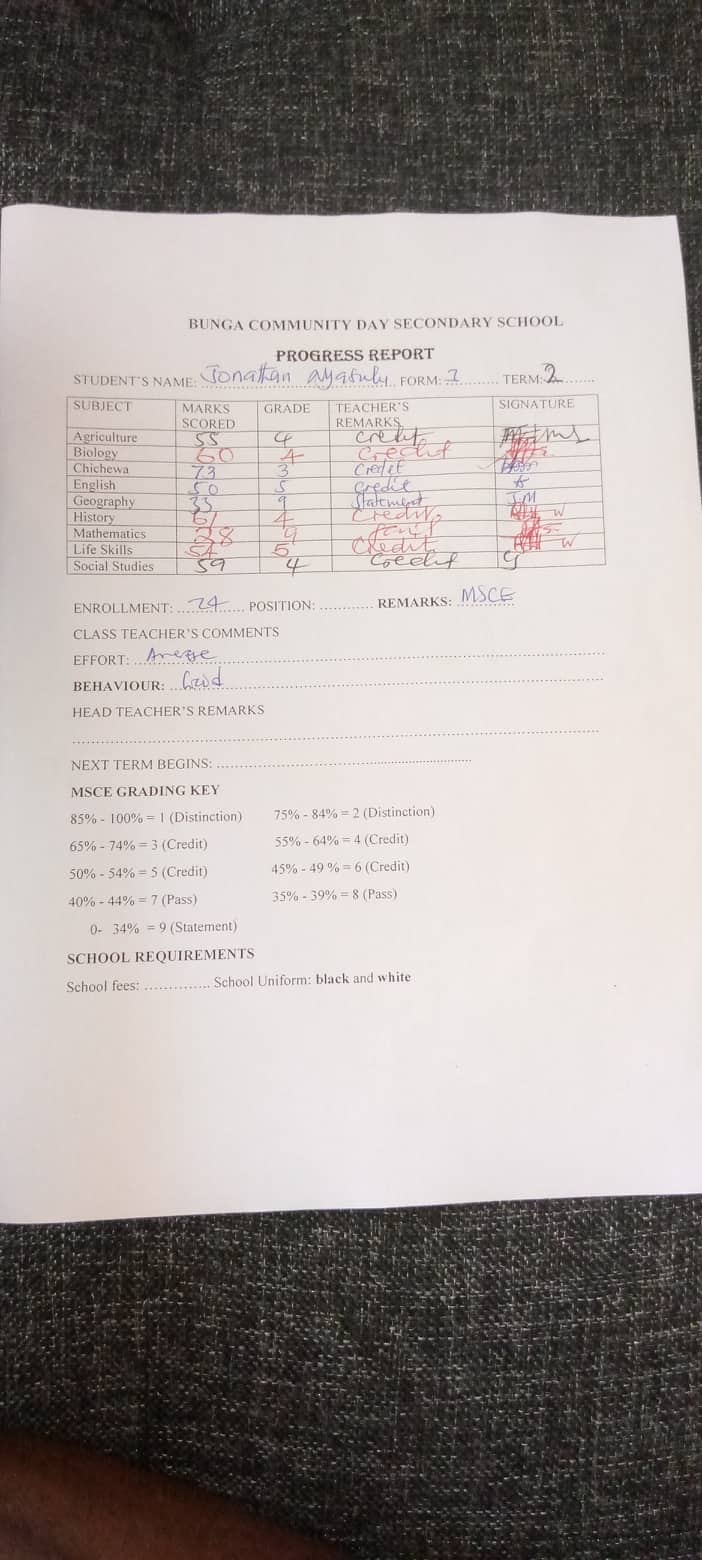 BUNGA COMMUNITY DAY SECONDARY SCHOOL
PROGRESS REPORT
STUDENT'S NAME: Jonathan FORM: 1 TERM: 2
SUBJECT MARKS SCORED GRADE TEACHER'S REMARKS SIGNATURE
Agriculture 55 4 Credit
Biology 60 4 Credit
Chichewa 73 3 Credit
English 50 5 Credit
Geography 33 9 Statement J.M
History 61 4 Credit W
Mathematics 28 9
Life Skills 54 5 Credit W
Social Studies 59 4 Credit
ENROLLMENT: 74 POSITION: ............ REMARKS: MSCE
CLASS TEACHER'S COMMENTS
EFFORT:
BEHAVIOUR: Good
HEAD TEACHER'S REMARKS
NEXT TERM BEGINS:
MSCE GRADING KEY
85% - 100% = 1 (Distinction) 75% - 84% = 2 (Distinction)
65% - 74% = 3 (Credit) 55% - 64% = 4 (Credit)
50% - 54% = 5 (Credit) 45% - 49 % = 6 (Credit)
40% - 44% = 7 (Pass) 35% - 39% = 8 (Pass)
0- 34% = 9 (Statement)
SCHOOL REQUIREMENTS
School fees: ............. School Uniform: black and white